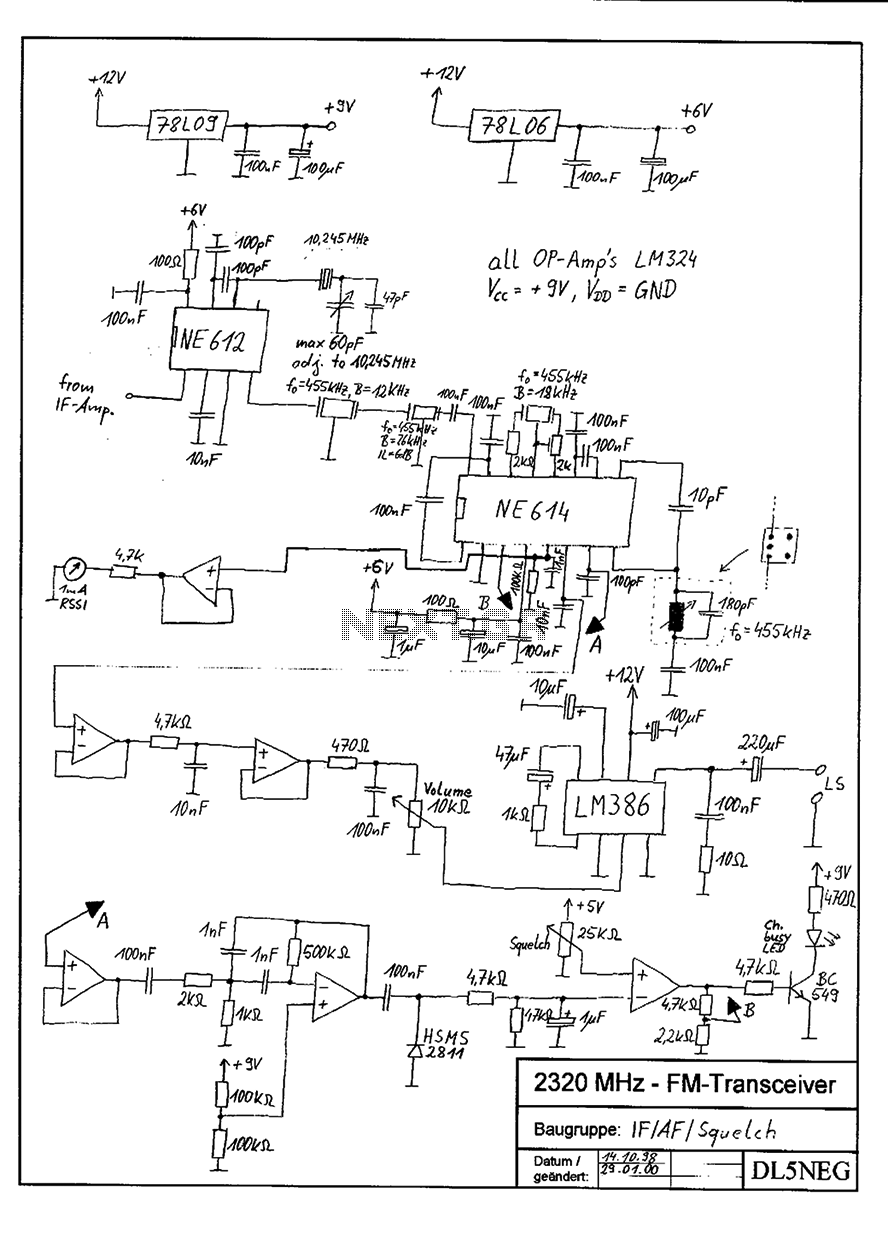 +12V
78L09
+9V
100nF
100µF
+12V
78L06
+6V
100nF
100µF
+6V
100Ω
100pF
100pF
10,245MHz
100nF
NE612
47pF
max 60pF
adj. to 10,245MHz
all OP-Amp's LM324
Vcc = +9V, VDD = GND
from
IF-Amp.
10nF
f₀=455kHz, B=12kHz
f₀=455kHz
IL=6dB
100nF
100nF
f₀=455kHz
B=18kHz
2kΩ
2k
100nF
100nF
100nF
NE614
10pF
4,7k
1mA
RSSI
+6V
100Ω
1µF
10µF
B
100kΩ
100nF
10nF
1nF
A
100pF
180pF
f₀=455kHz
100nF
4,7kΩ
10nF
470Ω
100nF
Volume
10kΩ
10µF
+12V
100µF
47µF
1kΩ
LM386
220µF
LS
100nF
10Ω
A
100nF
2kΩ
1nF
1nF
500kΩ
1kΩ
+9V
100kΩ
100kΩ
100nF
HSMS
2811
4,7kΩ
47kΩ
1µF
+5V
Squelch
25kΩ
4,7kΩ
4,7kΩ
2,2kΩ
B
+9V
470Ω
Ch.
busy
LED
BC
549
2320 MHz - FM-Transceiver
Baugruppe: IF/AF/Squelch
Datum /
geändert:
14.10.98
29.01.00
DL5NEG